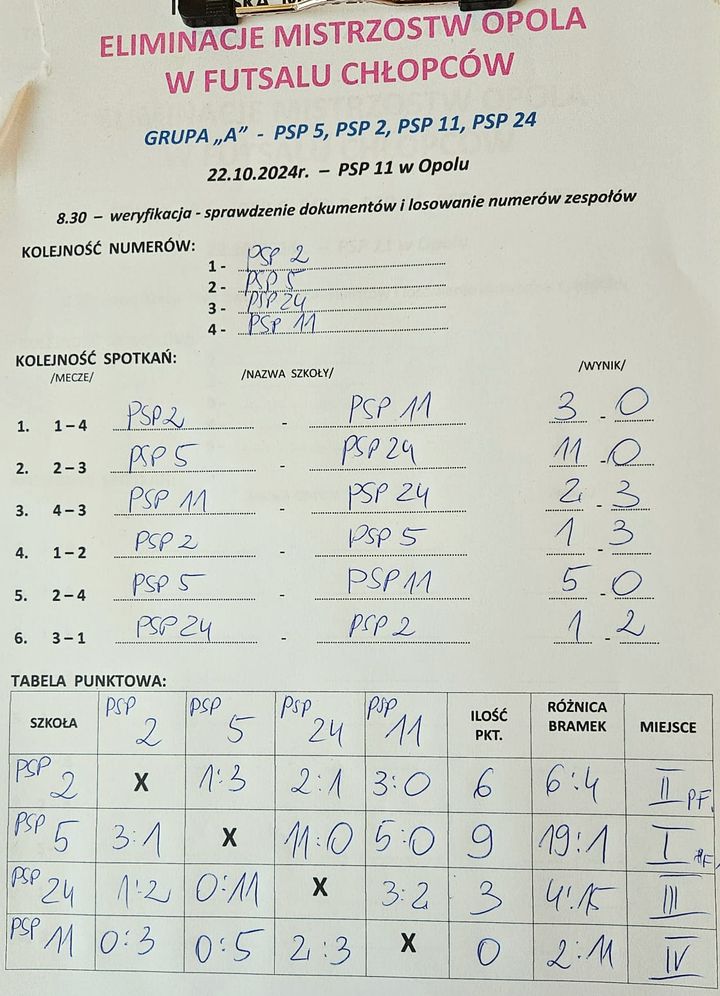 ELIMINACJE MISTRZOSTW OPOLA
W FUTSALU CHŁOPCÓW
GRUPA „A” - PSP 5, PSP 2, PSP 11, PSP 24
22.10.2024r. – PSP 11 w Opolu
8.30 – weryfikacja - sprawdzenie dokumentów i losowanie numerów zespołów
KOLEJNOŚĆ NUMERÓW:
1 - PSP 2
2 - PSP 5
3 - PSP 24
4 - PSP 11
KOLEJNOŚĆ SPOTKAŃ:
/MECZE/ /NAZWA SZKOŁY/ /WYNIK/
1. 1 – 4 PSP 2 - PSP 11 3 - 0
2. 2 – 3 PSP 5 - PSP 24 11 - 0
3. 4 – 3 PSP 11 - PSP 24 2 - 3
4. 1 – 2 PSP 2 - PSP 5 1 - 3
5. 2 – 4 PSP 5 - PSP 11 5 - 0
6. 3 – 1 PSP 24 - PSP 2 1 - 2
TABELA PUNKTOWA:
SZKOŁA PSP 2 PSP 5 PSP 24 PSP 11 ILOŚĆ PKT. RÓŻNICA BRAMEK MIEJSCE
PSP 2 X 1:3 2:1 3:0 6 6:4 II PF.
PSP 5 3:1 X 11:0 5:0 9 19:1 I PF.
PSP 24 1:2 0:11 X 3:2 3 4:15 III
PSP 11 0:3 0:5 2:3 X 0 2:11 IV